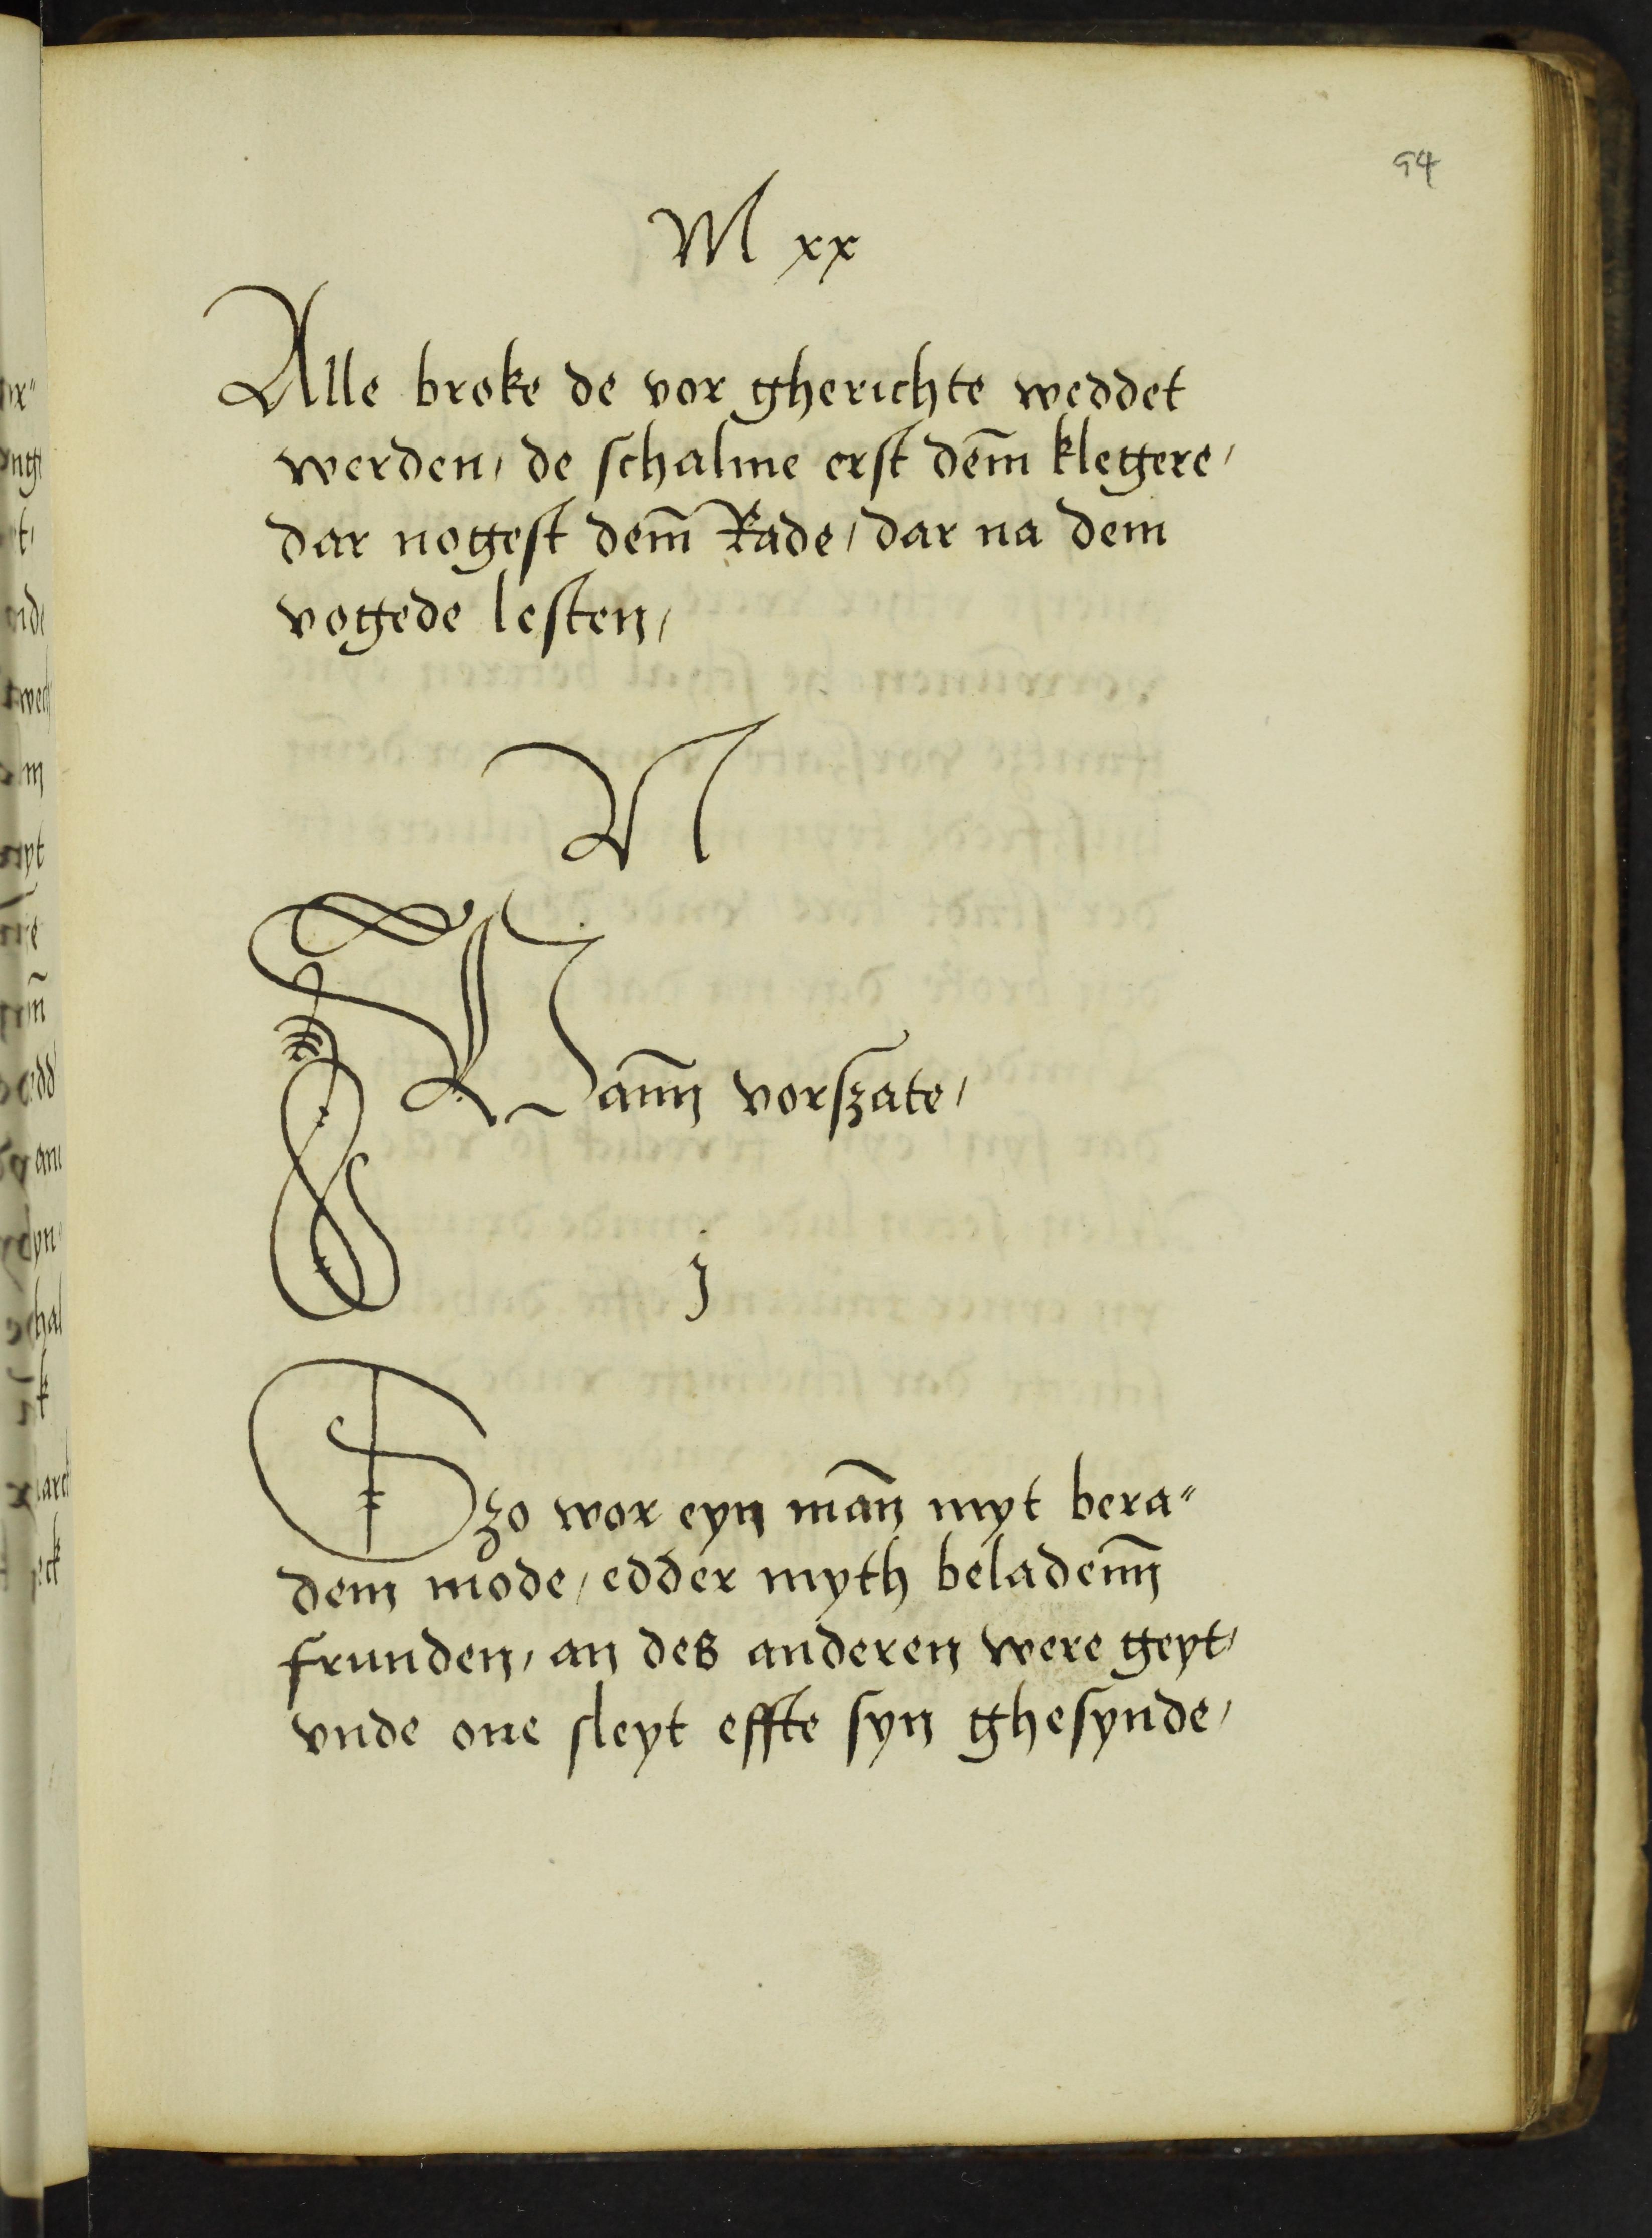 94
M xx
Alle broke de vor gherichte weddet
werden, de schalme erst dem̄ klegere,
dar nogest dem̄ Rade, dar na dem
vogede lesten,
N
Vann̄ vorszate,
j
Szo wor eyn man̄ myt bera"
dem mode, edder myth beladenn̄
frunden, an des anderen were geyt,
vnde one sleyt effte syn ghesynde,